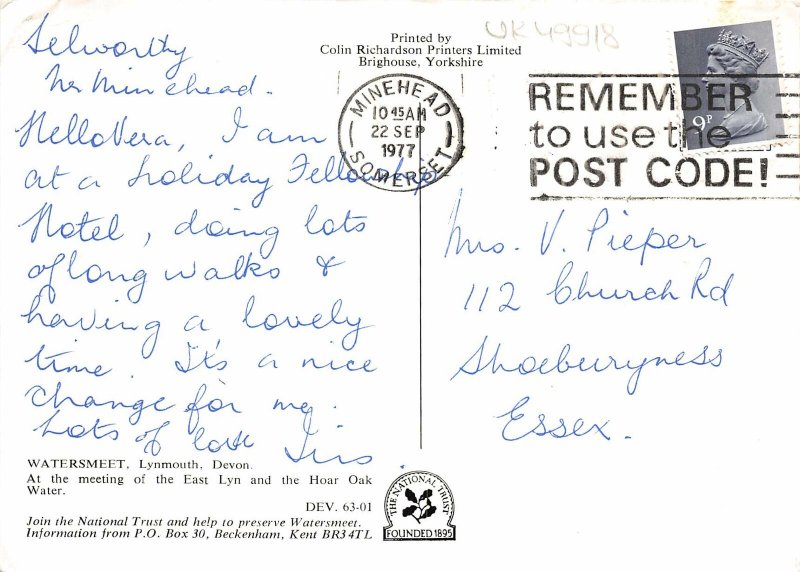 Selworthy
Nr Minehead.
Hello Vera, I am
at a Holiday Fellowship
Hotel, doing lots
of long walks &
having a lovely
time. It's a nice
change for me.
Lots of love Iris.
WATERSMEET, Lynmouth, Devon.
At the meeting of the East Lyn and the Hoar Oak
Water.
DEV. 63-01
Join the National Trust and help to preserve Watersmeet.
Information from P.O. Box 30, Beckenham, Kent BR3 4TL
THE NATIONAL TRUST
FOUNDED 1895
Printed by
Colin Richardson Printers Limited
Brighouse, Yorkshire
UK49918
MINEHEAD
10 45 AM
22 SEP
1977
SOMERSET
REMEMBER
to use the
POST CODE!
9P
Mrs. V. Pieper
112 Church Rd
Shoeburyness
Essex.